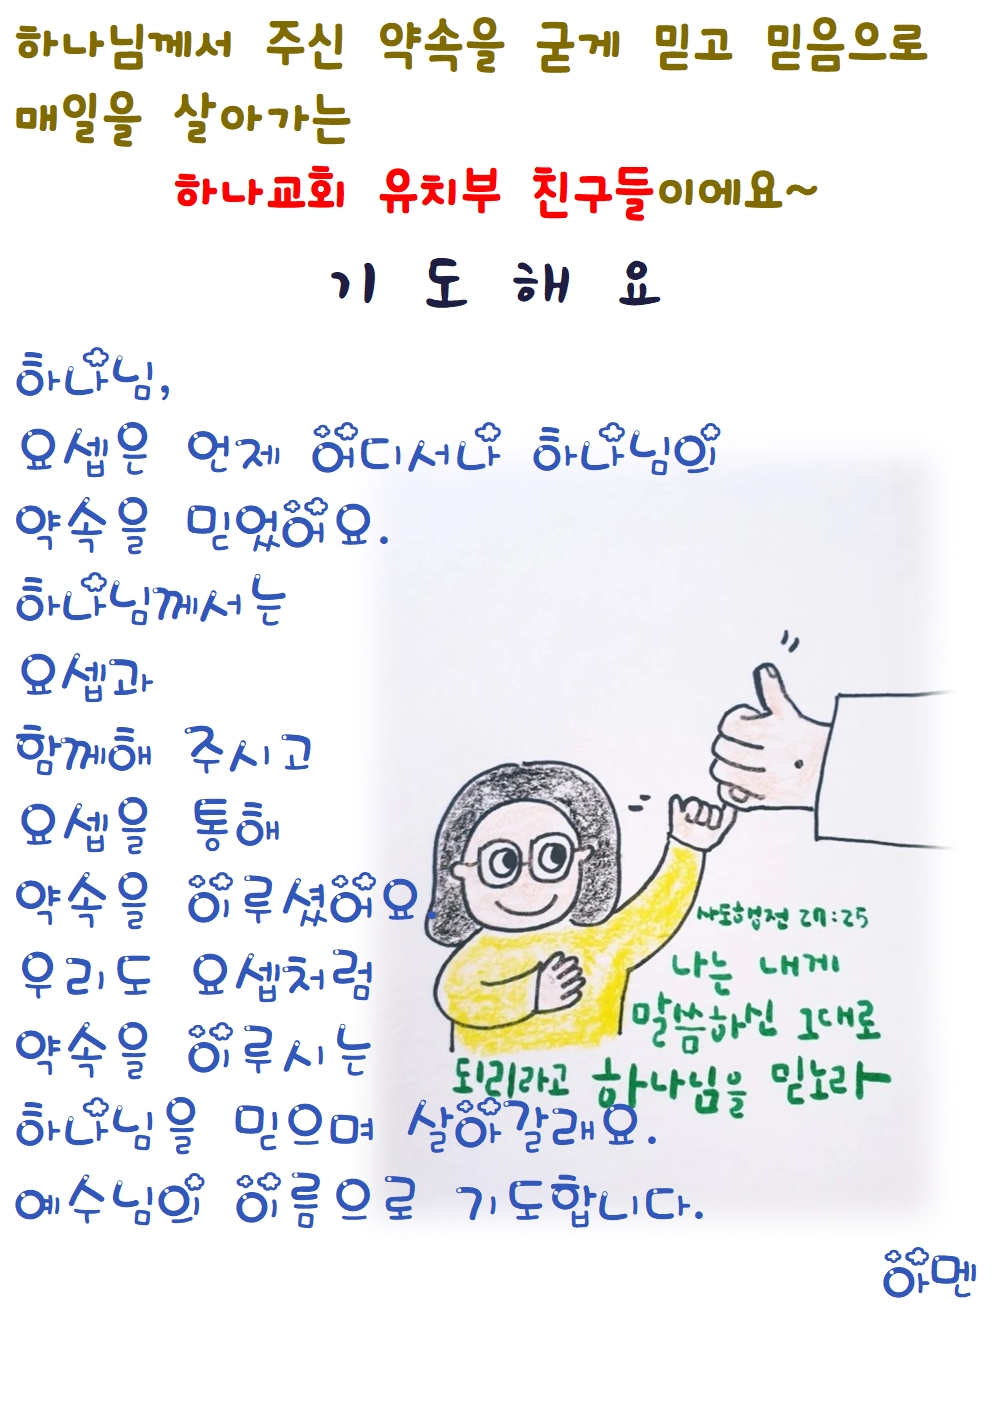 하나님께서 주신 약속을 굳게 믿고 믿음으로
매일을 살아가는
하나교회 유치부 친구들이에요~
기 도 해 요
하나님,
요셉은 언제 어디서나 하나님의
약속을 믿었어요.
하나님께서는
요셉과
함께해 주시고
요셉을 통해
약속을 이루셨어요.
우리도 요셉처럼
약속을 이루시는
하나님을 믿으며 살아갈래요.
예수님의 이름으로 기도합니다.
아멘
사도행전 27:25
나는 내게
말씀하신 그대로
되리라고 하나님을 믿노라